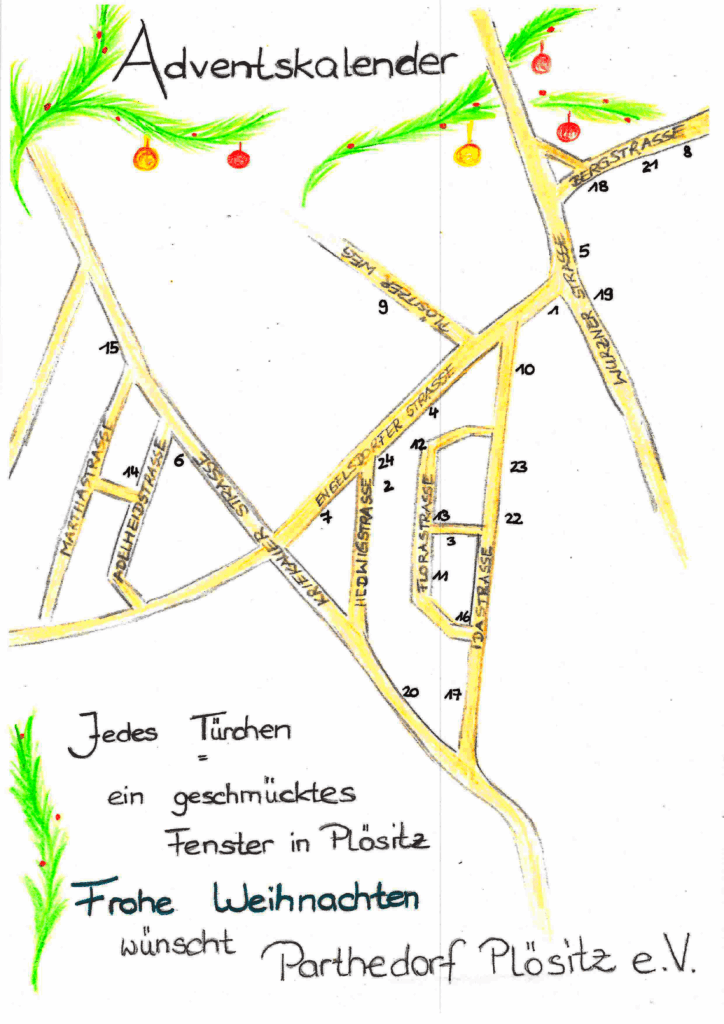 Adventskalender
BERGSTRASSE
8
21
18
5
WURZNER STRASSE
19
1
PLÖSITZER WEG
9
15
10
ENGELSDORFER STRASSE
4
12
24
2
7
23
22
13
3
11
16
FLORASTRASSE
IDASTRASSE
HEDWIGSTRASSE
MARTHASTRASSE
14
ADELHEIDSTRASSE
6
KRIEKAUER STRASSE
20
17
Jedes Türchen
=
ein geschmücktes
Fenster in Plösitz
Frohe Weihnachten
wünscht Parthedorf Plösitz e.V.